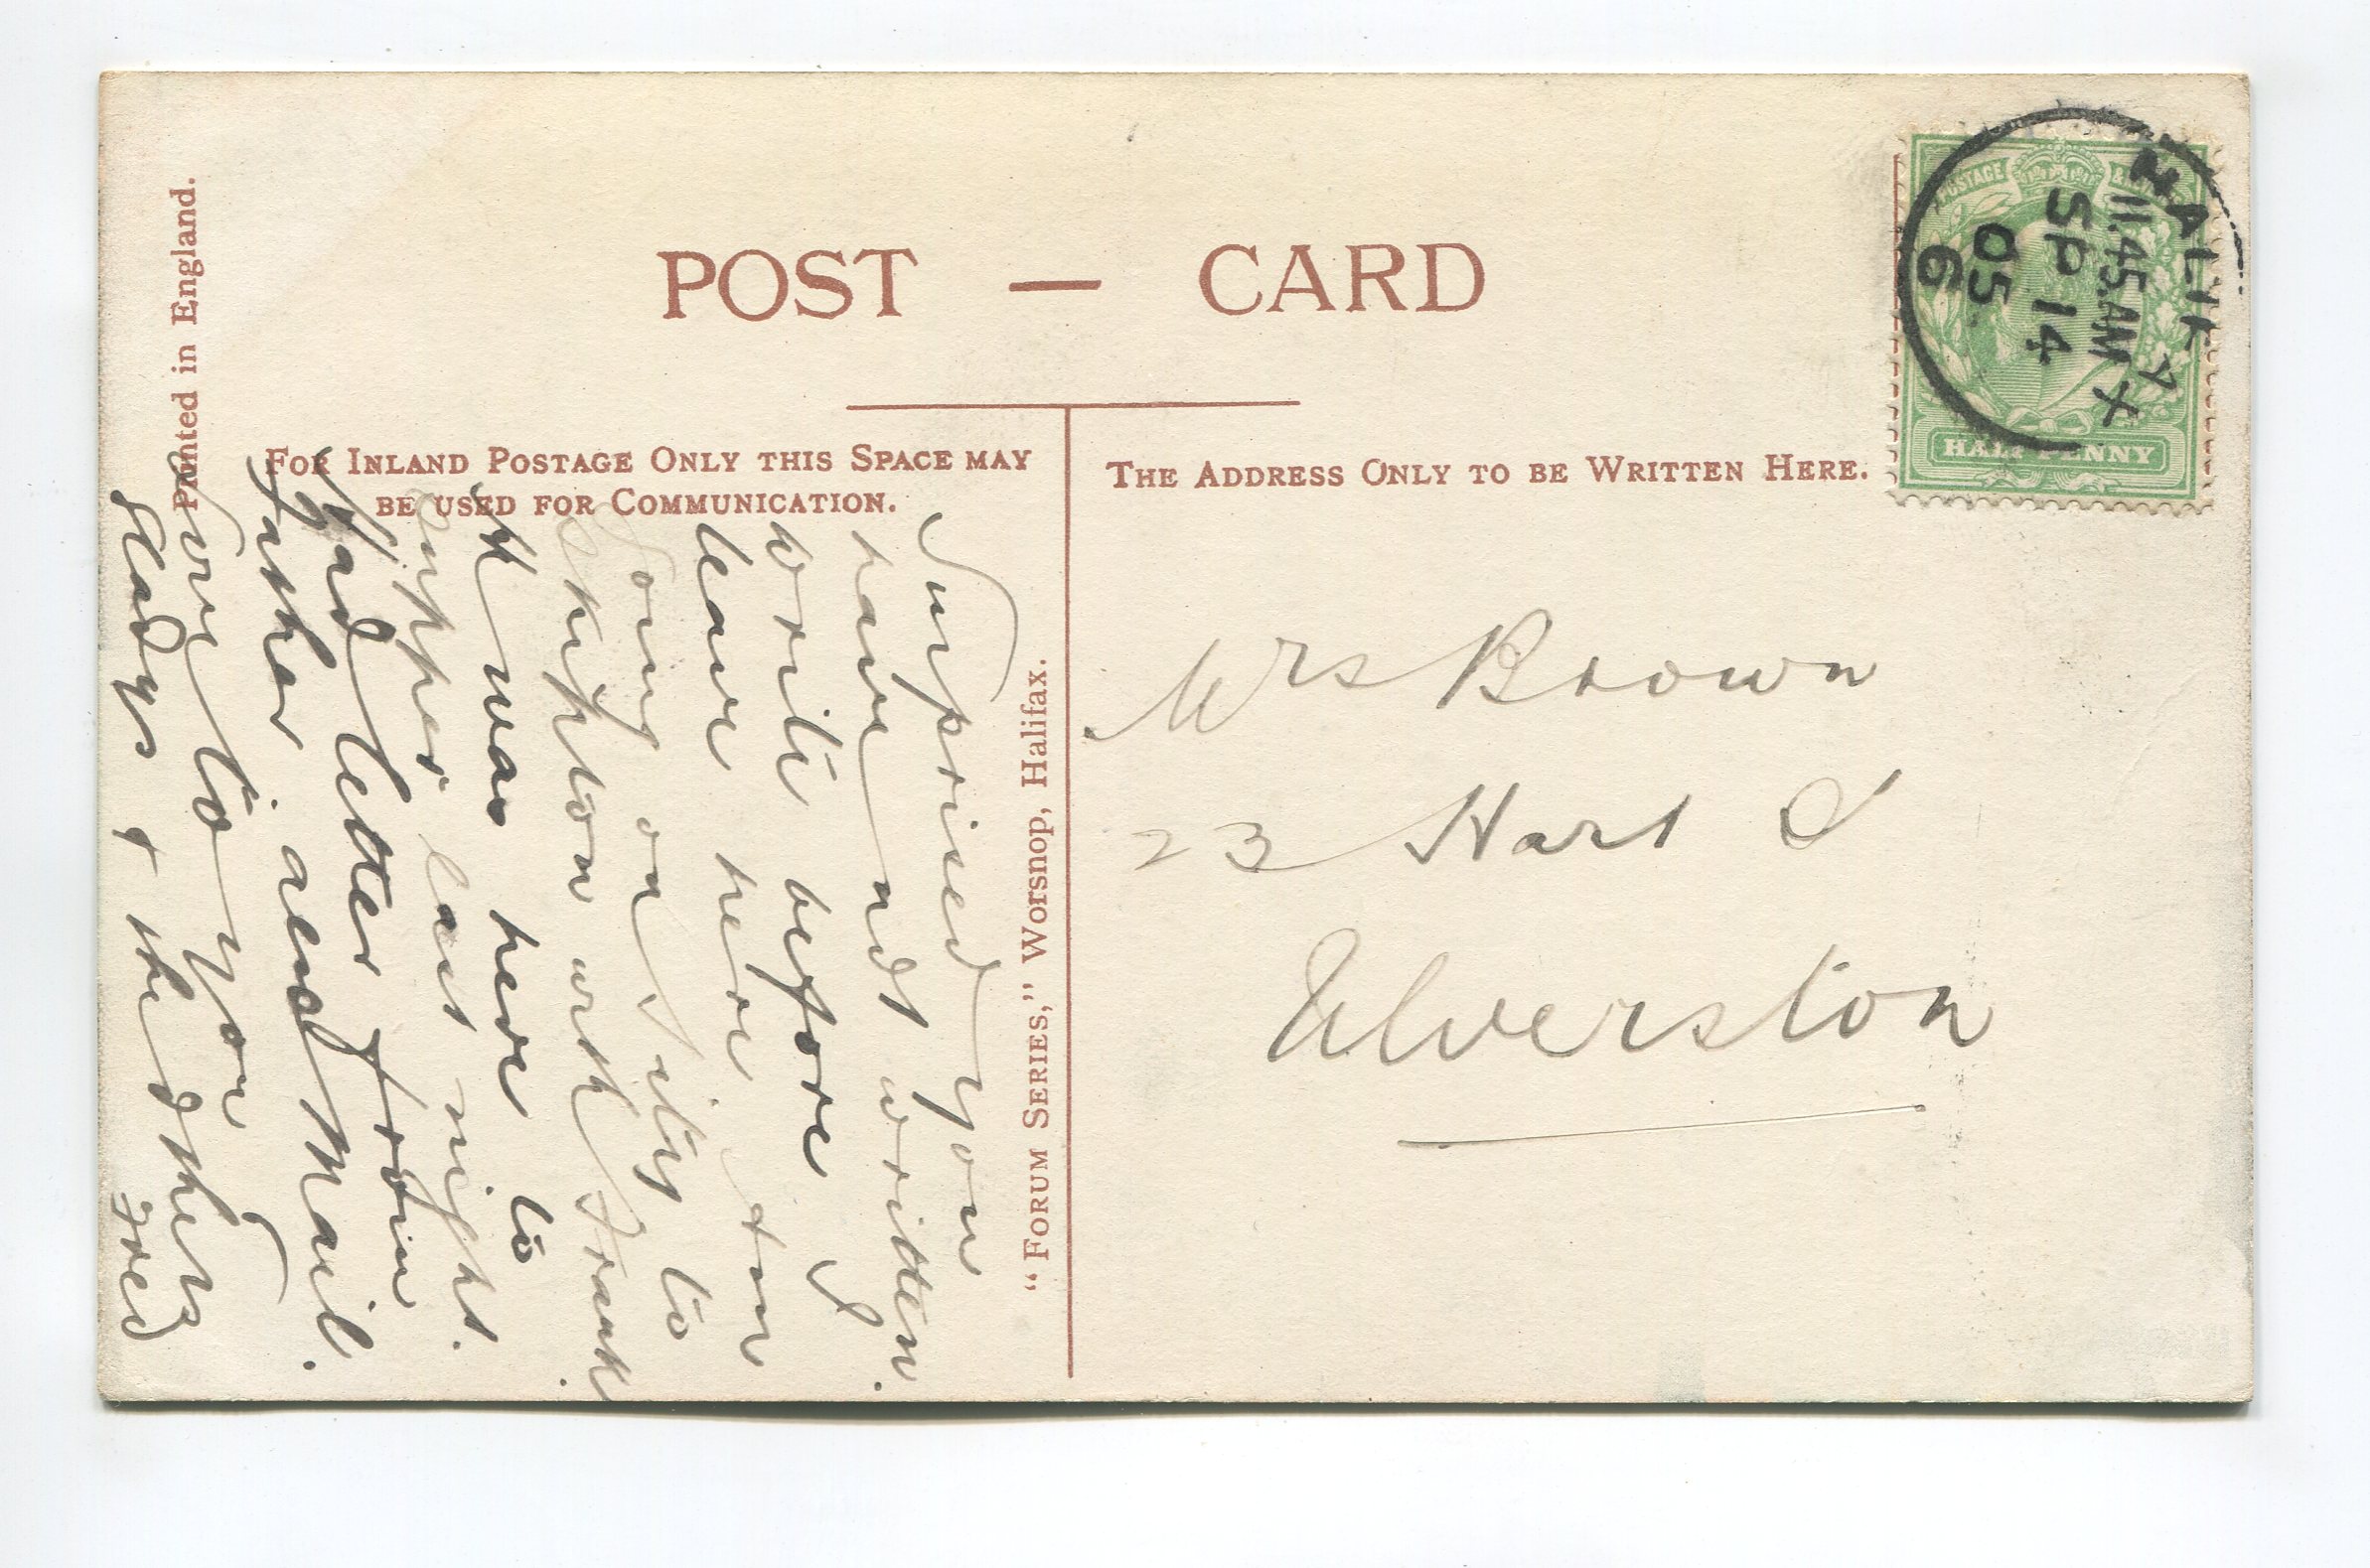 POST — CARD
Printed in England.
FOR INLAND POSTAGE ONLY THIS SPACE MAY
BE USED FOR COMMUNICATION.
THE ADDRESS ONLY TO BE WRITTEN HERE.
"FORUM SERIES," Worsnop, Halifax.
HALIFAX
11.45 AM
SP 14
05
6
POSTAGE &
HALFPENNY
Mrs Brown
23 Hart St
Ulverston
Surprised you
have not written.
write before I
leave here & am
going on to
Skipton with Frank.
H was here to
supper last night.
Had letter from
Father and Mail.
Love to you
Gladys & the others
Fred